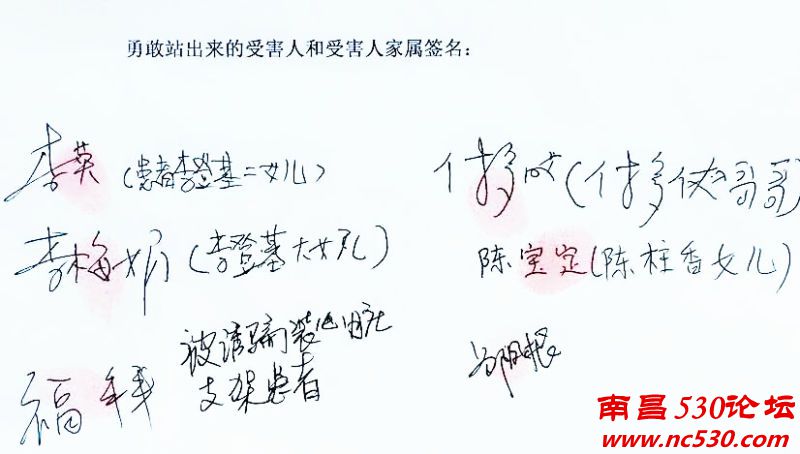 勇敢站出来的受害人和受害人家属签名:
李英 (患者李登基二女儿)
李梅娟 (李登基大女儿)
被诱骗装心脏
支架患者
福
哥哥)
陈宝定(陈柱香女儿)
根
南昌530论坛
www.nc530.com